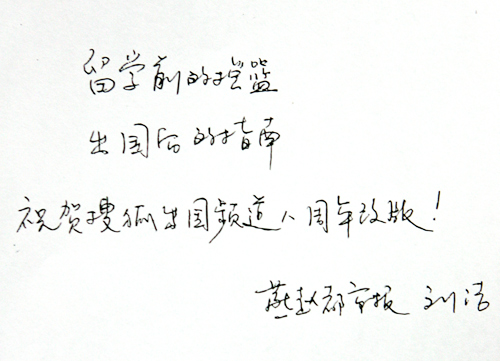 留学前的
出国后的指南
祝贺搜狐出国频道八周年改版！
燕赵都市报 刘